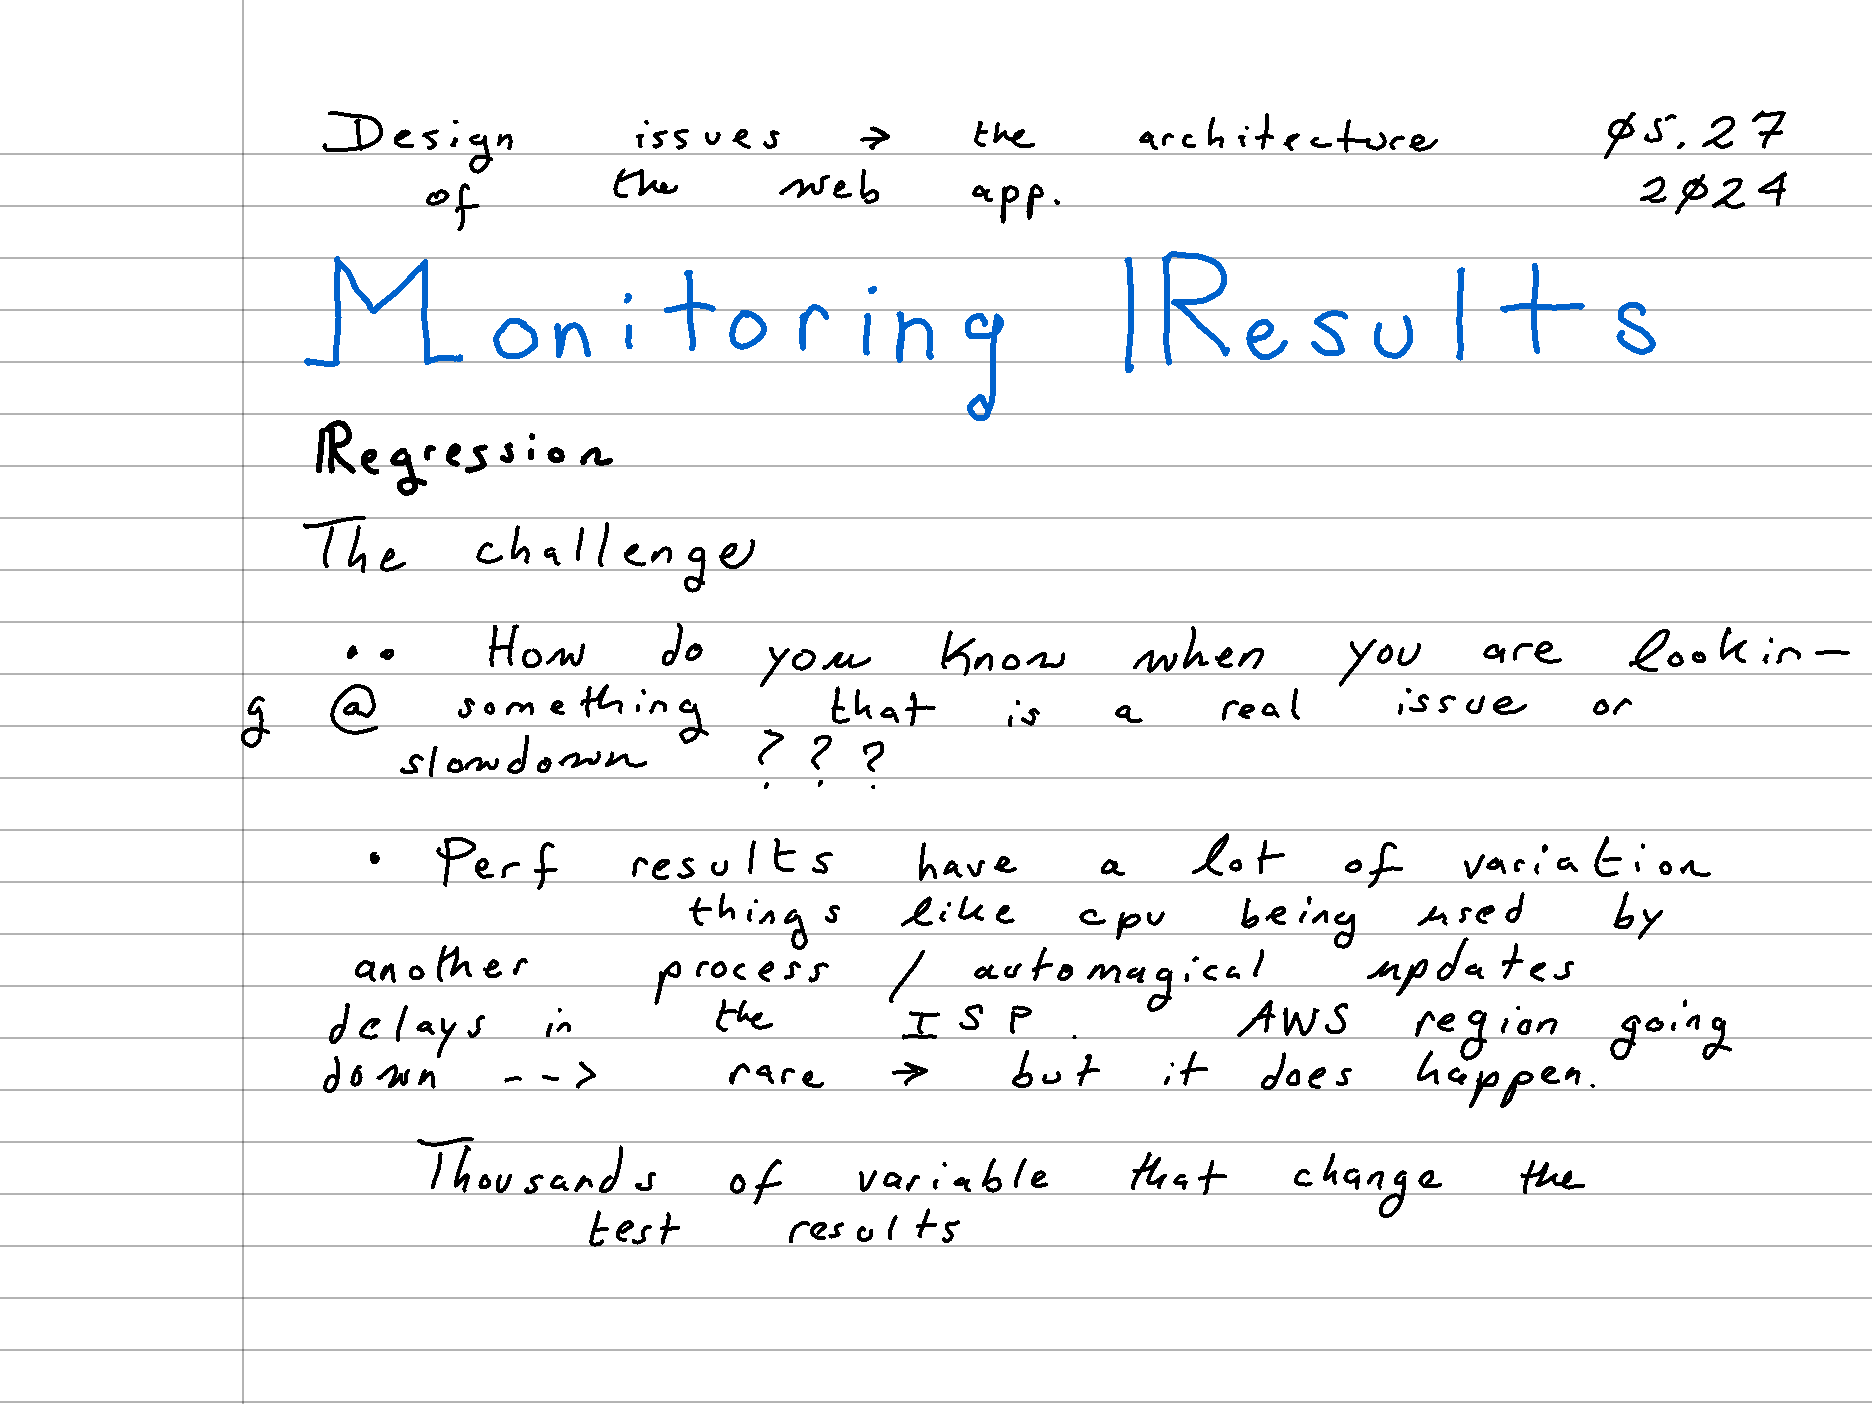 Design issues → the architecture 05.27
of the web app. 2024
Monitoring Results
Regression
The challenge
•• How do you know when you are lookin-
g @ something that is a real issue or
slowdown ???
• Perf results have a lot of variation
things like cpu being used by
another process / automagical updates
delays in the ISP. AWS region going
down --> rare → but it does happen.
Thousands of variable that change the
test results